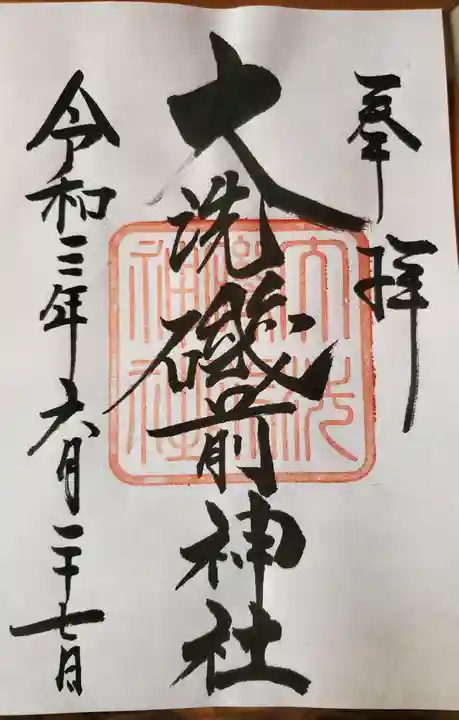 奉拝
大洗磯前神社
令和三年六月二十七日
大洗磯前神社